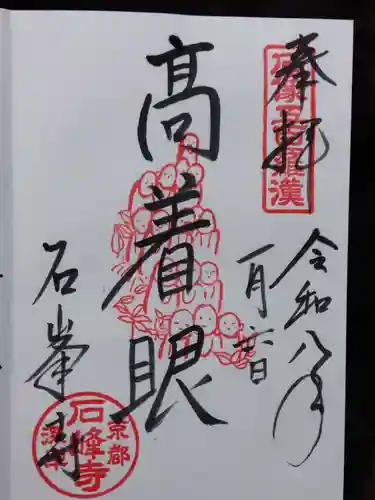 奉拝
石像五百羅漢
令和八年
一月六日
高着眼
石峯寺
京都
深草
石峰寺